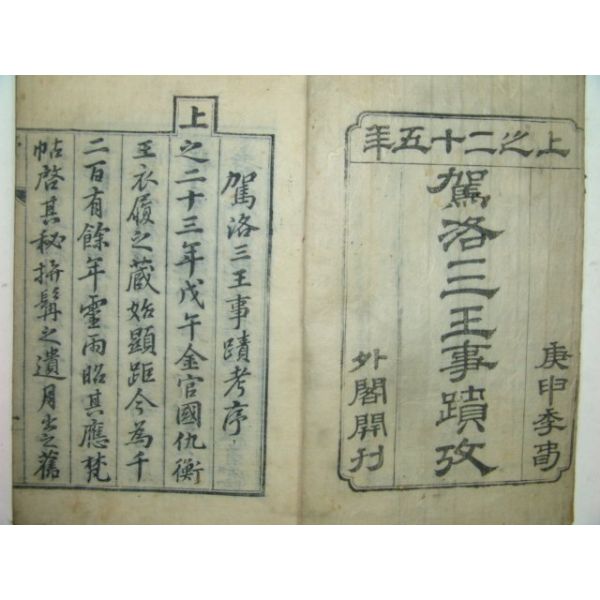 上之二十五年
庚申季
駕洛三王事蹟攷
外閣開刊
駕洛三王事蹟考序
上
之二十三年戊午金官國仇衡
王衣履之蔵始顯距今為千
二百有餘年靈雨昭其應梵
帖啓其秘揜髯之遺月出之舊